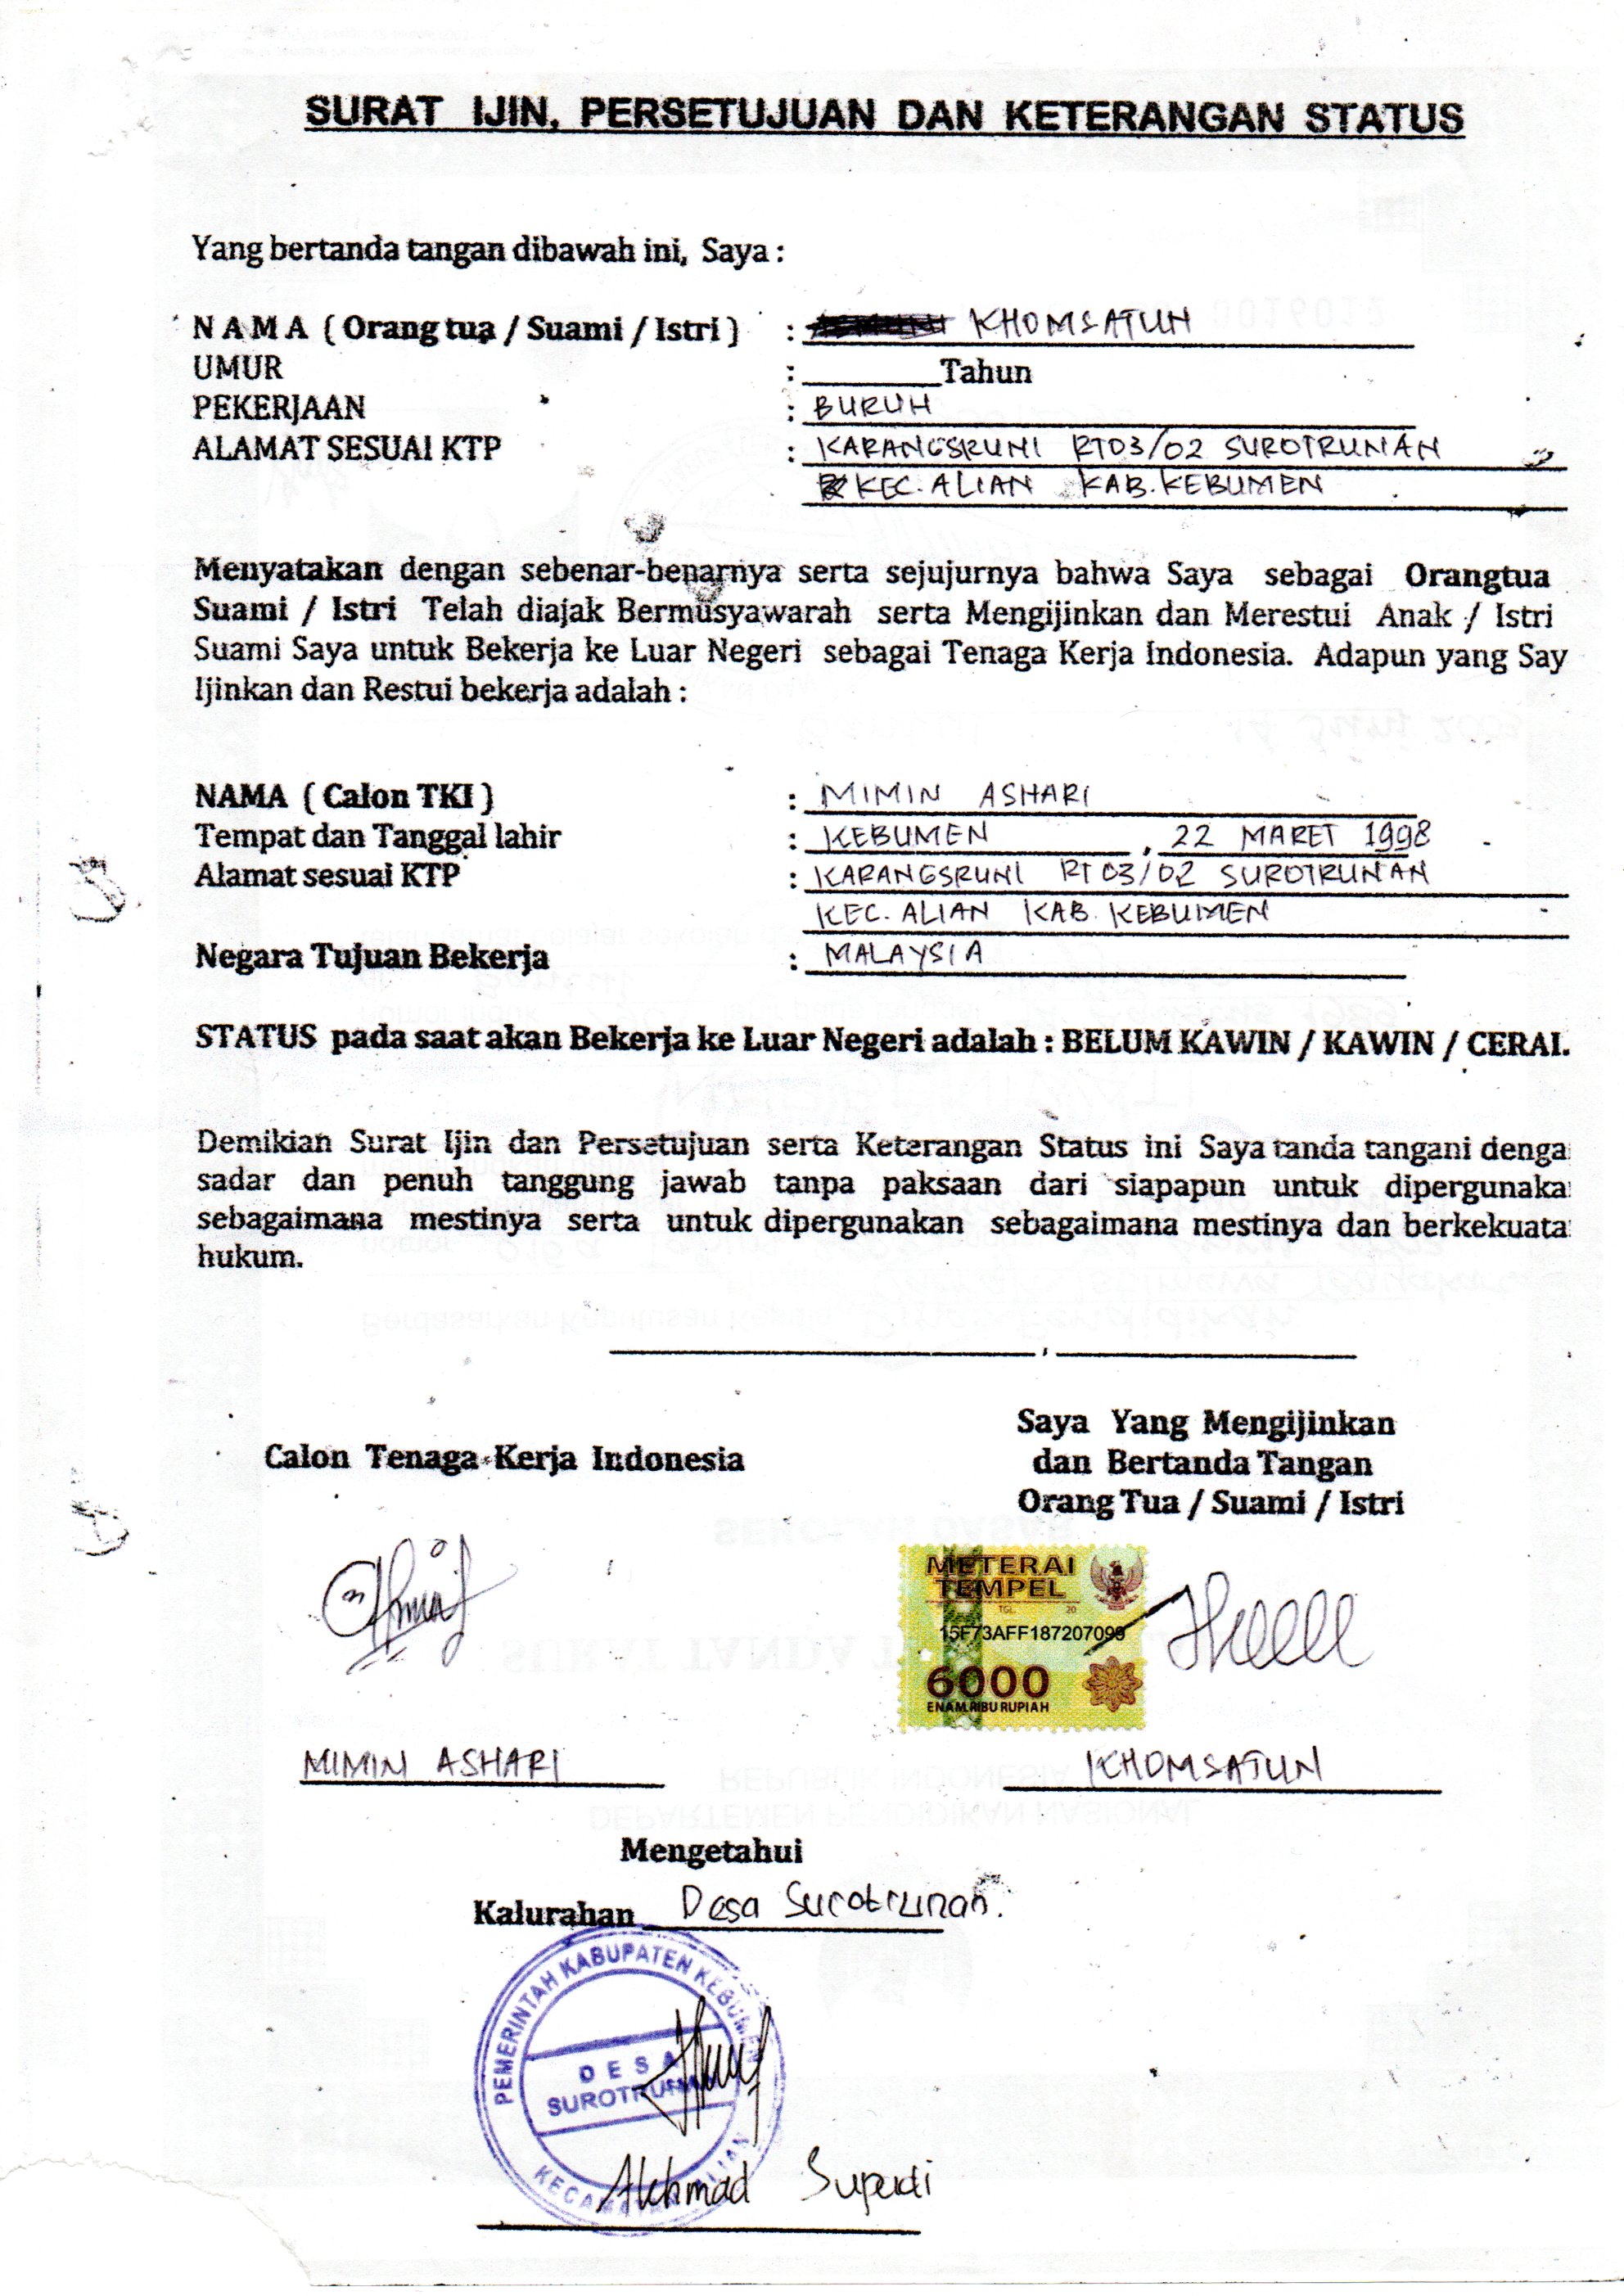 SURAT IJIN, PERSETUJUAN DAN KETERANGAN STATUS
Yang bertanda tangan dibawah ini, Saya :
N A M A ( Orang tua / Suami / Istri ) : KHOMSATUN
UMUR : ________Tahun
PEKERJAAN : BURUH
ALAMAT SESUAI KTP : KARANGSRUNI RT03/02 SUROTRUNAN
KEC. ALIAN KAB. KEBUMEN
Menyatakan dengan sebenar-benarnya serta sejujurnya bahwa Saya sebagai Orangtua
Suami / Istri Telah diajak Bermusyawarah serta Mengijinkan dan Merestui Anak / Istri
Suami Saya untuk Bekerja ke Luar Negeri sebagai Tenaga Kerja Indonesia. Adapun yang Say
Ijinkan dan Restui bekerja adalah :
NAMA ( Calon TKI ) : MIMIN ASHARI
Tempat dan Tanggal lahir : KEBUMEN , 22 MARET 1998
Alamat sesuai KTP : KARANGSRUNI RT 03/02 SUROTRUNAN
KEC. ALIAN KAB. KEBUMEN
Negara Tujuan Bekerja : MALAYSIA
STATUS pada saat akan Bekerja ke Luar Negeri adalah : BELUM KAWIN / KAWIN / CERAI.
Demikian Surat Ijin dan Persetujuan serta Keterangan Status ini Saya tanda tangani denga
sadar dan penuh tanggung jawab tanpa paksaan dari siapapun untuk dipergunaka
sebagaimana mestinya serta untuk dipergunakan sebagaimana mestinya dan berkekuata
hukum.
Calon Tenaga Kerja Indonesia
Saya Yang Mengijinkan
dan Bertanda Tangan
Orang Tua / Suami / Istri
METERAI
TEMPEL
TGL. 20
15F73AFF187207099
6000
ENAM RIBU RUPIAH
MIMIN ASHARI
KHOMSATUN
Mengetahui
Kalurahan Desa Surotrunan.
PEMERINTAH KABUPATEN KEBUMEN
DESA
SUROTRUNAN
KECAMATAN ALIAN
Akhmad Supardi